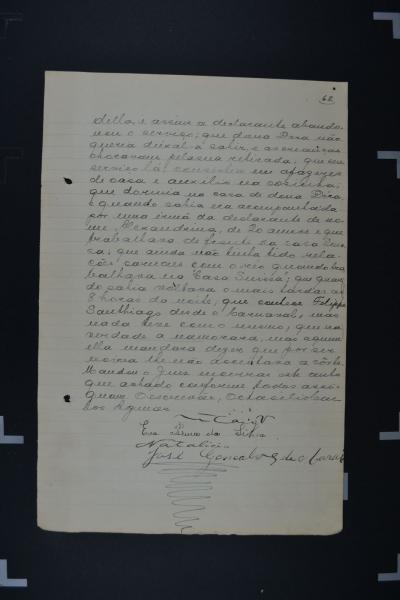 62
della, e assim a declarante abando-
nou o serviço; que dona Dora não
queria deixal-a sahir, e as crianças
choravam pela sua retirada; que seu
serviço lá consistia em afazeres
de casa e auxilios na cosinha;
que dormia na casa de dona Dora,
e quando sahia era acompanhada
por uma irmã da declarante de no-
me Alexandrina, de 20 annos e que
trabalhava de frente da casa
sa; que ainda não tinha tido rela-
ções carnaes com o reo quando tra
balhava na "Casa Suissa"; que quan
do sahia voltava o mais tardar as
8 horas da noite; que conhece Felippe
Santhiago desde o Carnaval, mas
nada teve com o mesmo; que na
verdade a namorava, mas aquem
ella mandara dizer que por ser
noiva lhe não a côrte.
Mandou o Juiz encerrar este auto
que achado conforme todos assi-
gnam. Eu escrevente,
dos
Eva da Silva
Natalicio
José Gonçalves de